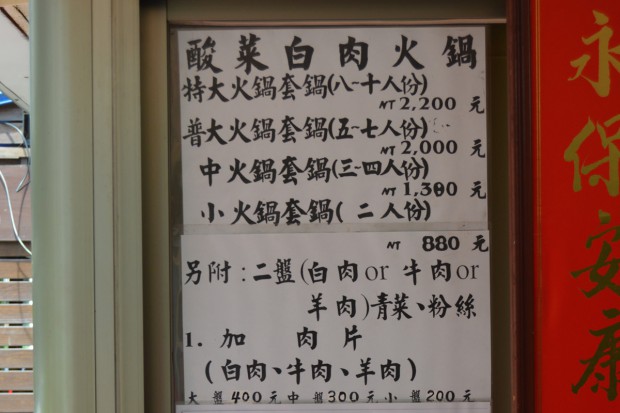 酸菜白肉火鍋
特大火鍋套鍋(八~十人份)
NT 2,200 元
普大火鍋套鍋(五~七人份)
NT 2,000 元
中火鍋套鍋(三~四人份)
NT 1,300 元
小火鍋套鍋(二人份)
NT 880 元
另附:二盤(白肉or 牛肉or
羊肉)青菜、粉絲
1. 加 肉片
(白肉、牛肉、羊肉)
大 盤 400 元 中 盤 300 元 小 盤 200 元
永保安康